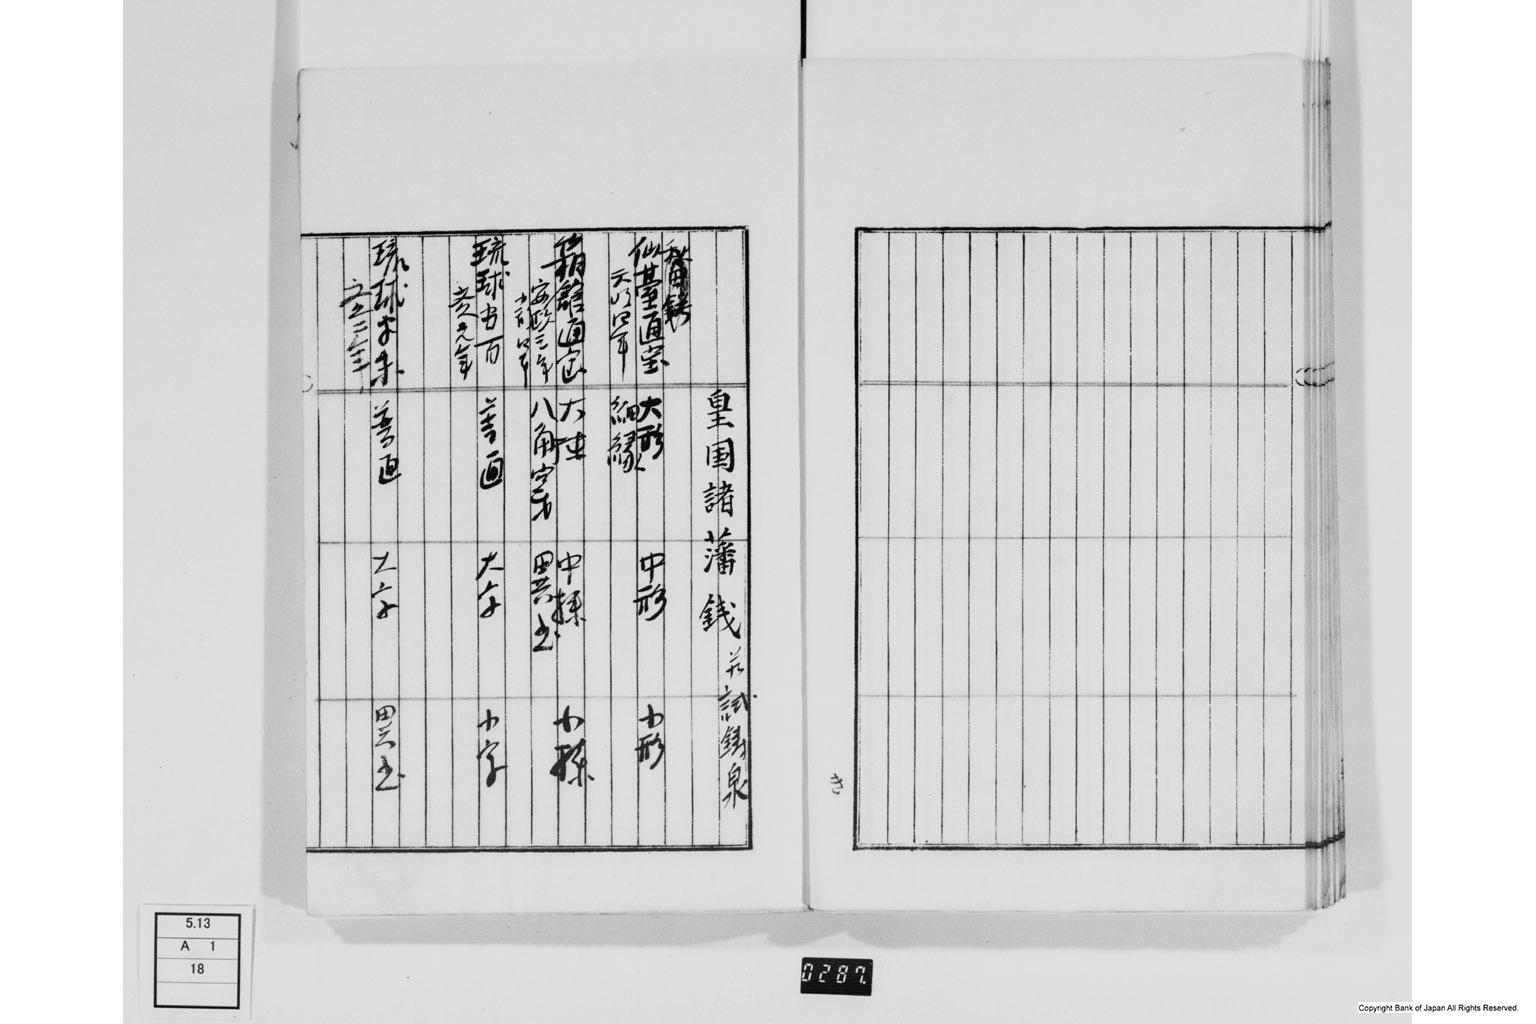 き
皇国諸藩銭 并試鋳泉
仙臺通宝
天明四年
大形
細縁
中形
小形
箱館通宝
安政三年
同四年
大
八角穿
中
異書
小
琉球当百
文久元年
普通
大字
小字
琉球半朱
文久二年
普通
大字
異書
5.13
A 1
18
0287.
Copyright Bank of Japan All Rights Reserved.